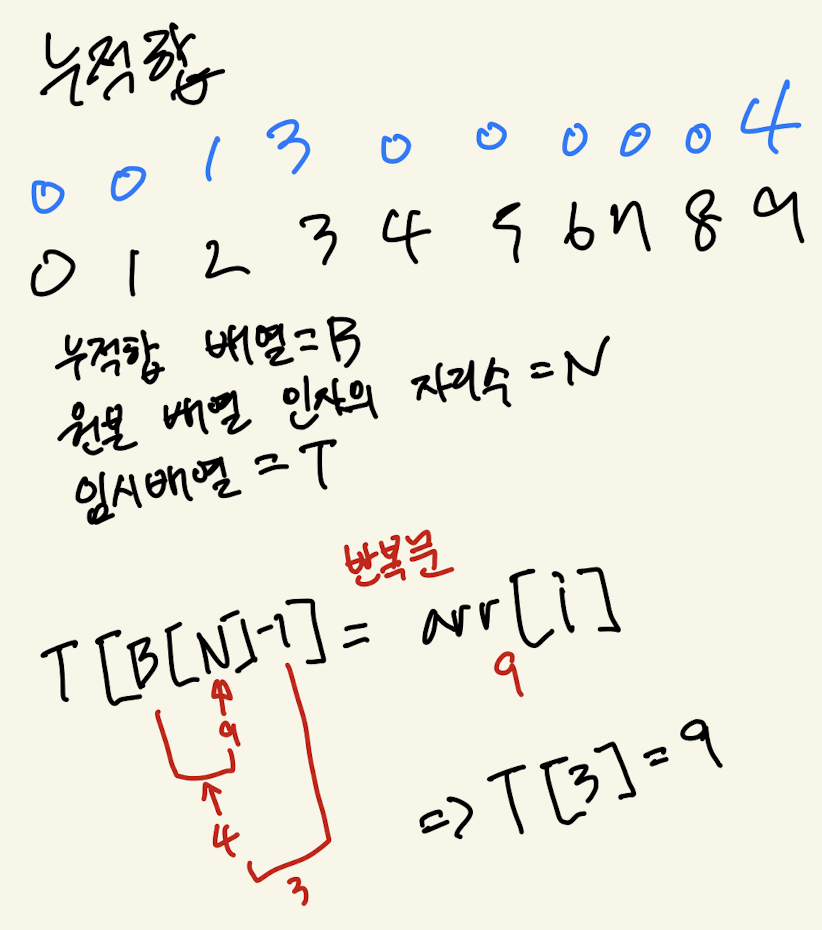 누적합
0 0 1 3 0 0 0 0 0 4
0 1 2 3 4 5 6 7 8 9
누적합 배열=B
원본 배열 인자의 자리수=N
임시배열=T
반복문
T[B[N]-1]= arr[i]
9
9
4
3
=> T[3]=9